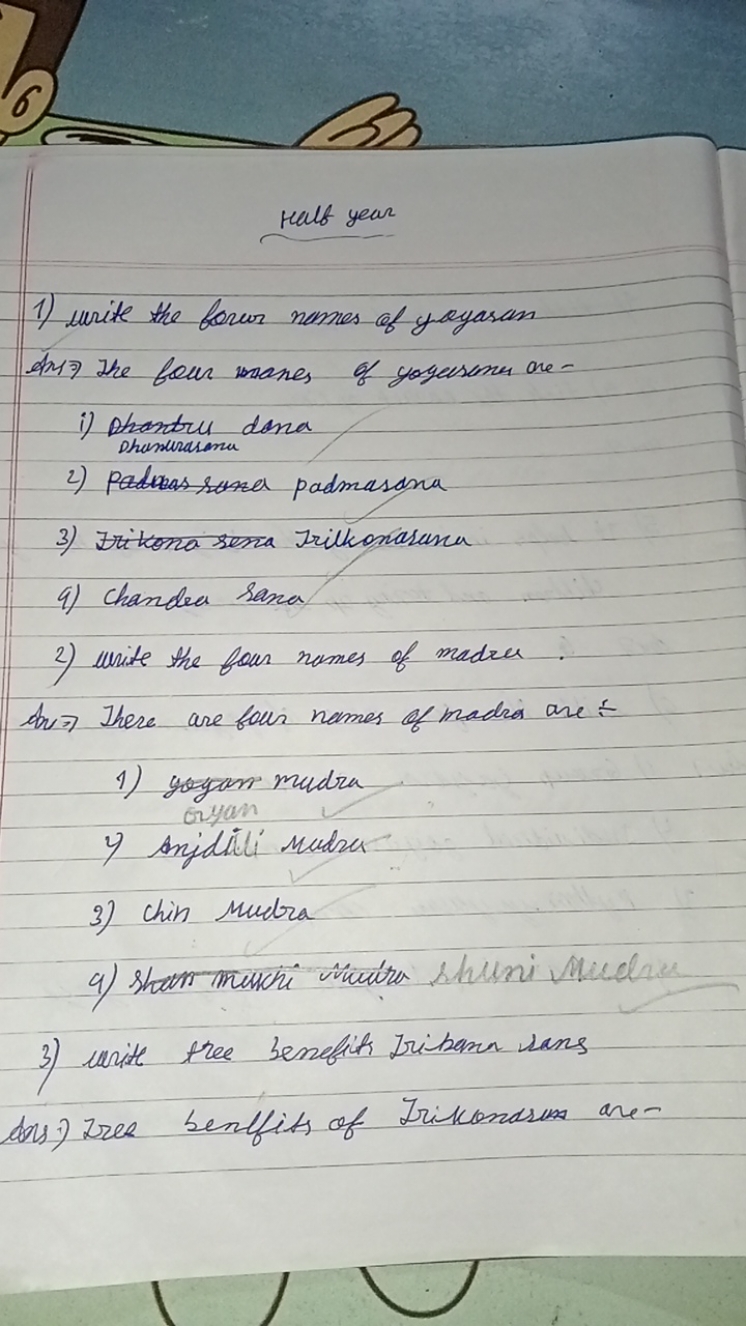 Half year
1) write the forur names of yoyasan
Ans⇒ The four nanes of yogasana are -
i) Dhantru dana
Dhanurasana
2) Padmas sana padmasana
3) Trikono sena Trilkonasana
4) Chandra sana
2) write the four names of madra .
An⇒ There are four names of madra are ÷
1) yogan mudra
Gyan
2) Anjdili Mudra
3) Chin Mudra
4) Shan mukhi Mudra Shuni Mudra
3) write tree benefits Trikana sans
Ans:) Tree benlfits of Trikonasan are -